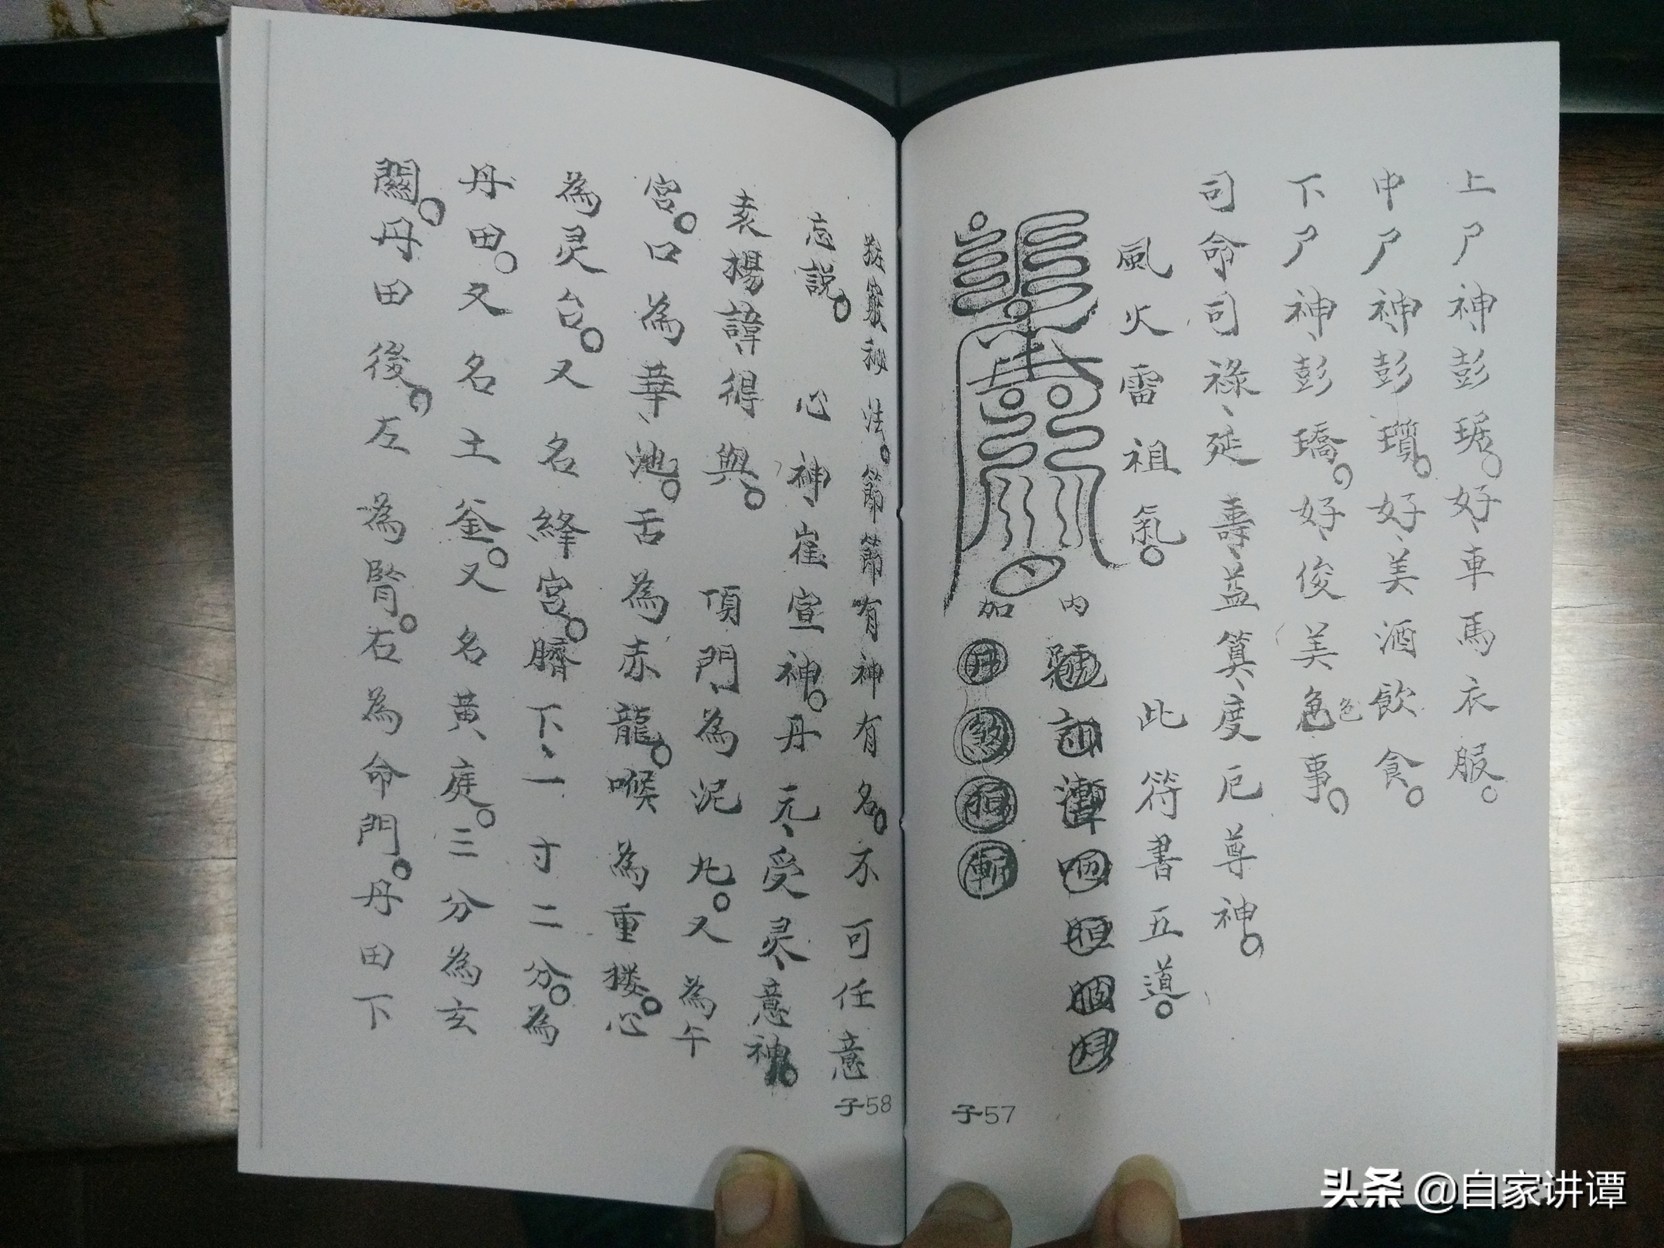 上尸神彭琚好車馬衣服
中尸神彭瓆好美酒飲食
下尸神彭矯好俊美色事
色
司命司祿延壽益算度厄尊神
風火雷祖氣 此符書五道
内
加
竅秘法節節有神有名不可任意
忘説 心神崔宣神丹元受灵意神
袁楊諱得與 頂門為泥丸又為午
宮口為華池舌為赤龍喉為重楼心
為灵台又名絳宮臍下一寸二分為
丹田又名土釜又名黃庭三分為玄
關丹田後左為腎右為命門丹田下
子57
子58
头条 @自家讲谭